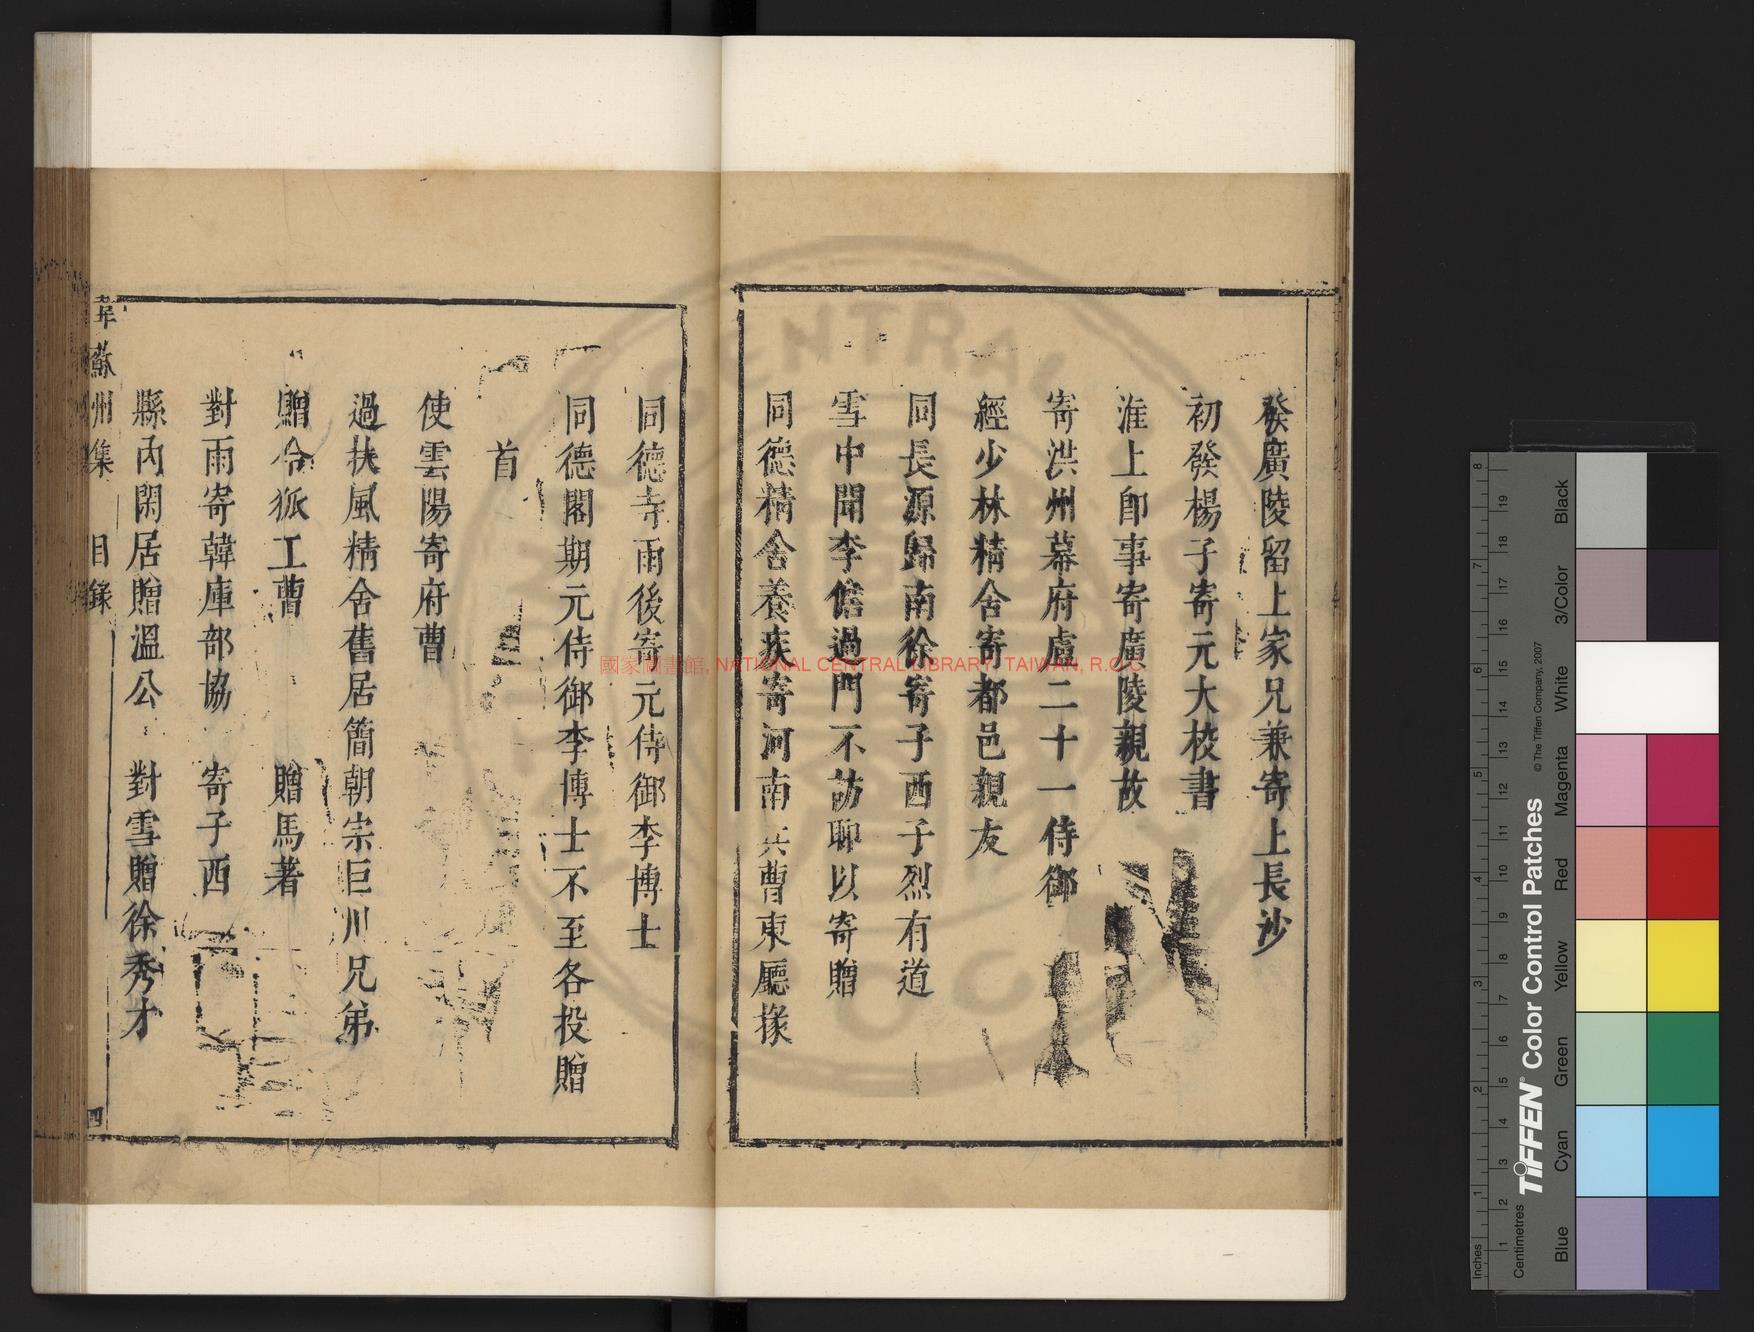 發廣陵留上家兄兼寄上長沙
初發楊子寄元大校書
淮上卽事寄廣陵親故
寄洪州幕府盧二十一侍御
經少林精舍寄都邑親友
同長源歸南徐寄子西子烈有道
雪中聞李儋過門不訪聊以寄贈
同德精舍養疾寄河南兵曹東廳掾
同德寺雨後寄元侍御李博士
同德閣期元侍御李博士不至各投贈
首
使雲陽寄府曹
過扶風精舍舊居簡朝宗巨川兄弟
贈令狐工曹　贈馬著
對雨寄韓庫部協　寄子西
縣內閑居贈溫公　對雪贈徐秀才
韋蘇州集　目錄　四
國家圖書館, NATIONAL CENTRAL LIBRARY, TAIWAN, R.O.C.
Inches
Centimetres
TIFFEN® Color Control Patches
© The Tiffen Company, 2007
Blue
Cyan
Green
Yellow
Red
Magenta
White
3/Color
Black